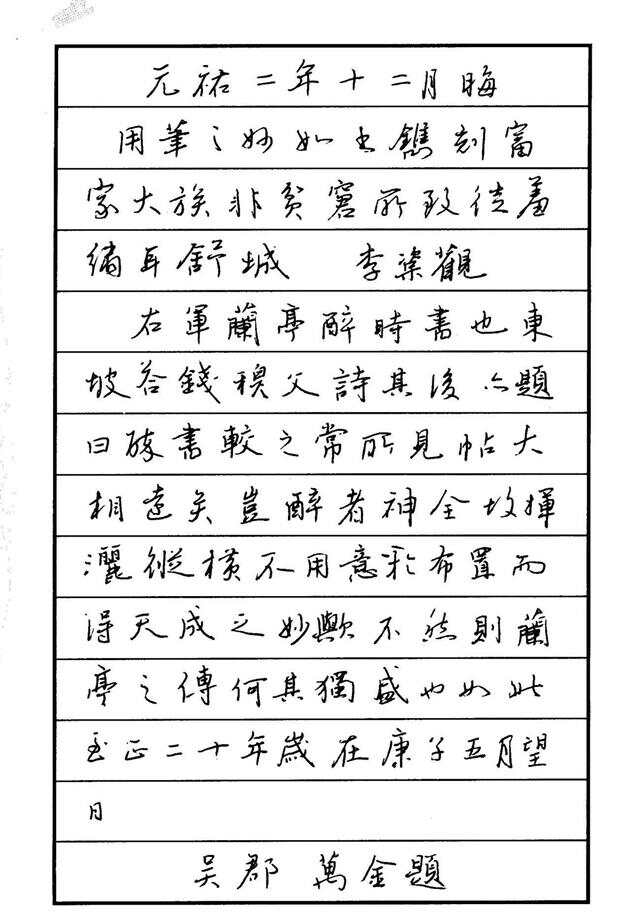 元祐二年十二月晦
用筆之妙如玉鐫刻富
家大族非貧窶所致徒羞
縮耳舒城 李楶觀
右軍蘭亭醉時書也東
坡荅錢穆父詩其後亦題
曰醉書較之常所見帖大
相遠矣豈醉者神全故揮
灑縱橫不用意於布置而
得天成之妙歟不然則蘭
亭之傳何其獨盛也如此
至正二十年歲在庚子五月望
日
吳郡 萬金題